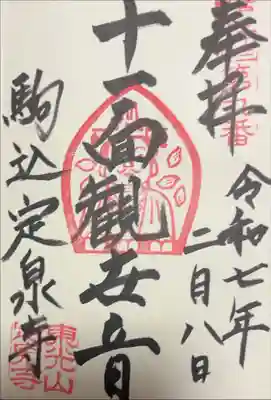 奉拝
令和七年
二月八日
十一面観世音
駒込定泉寺
東光山
定泉寺